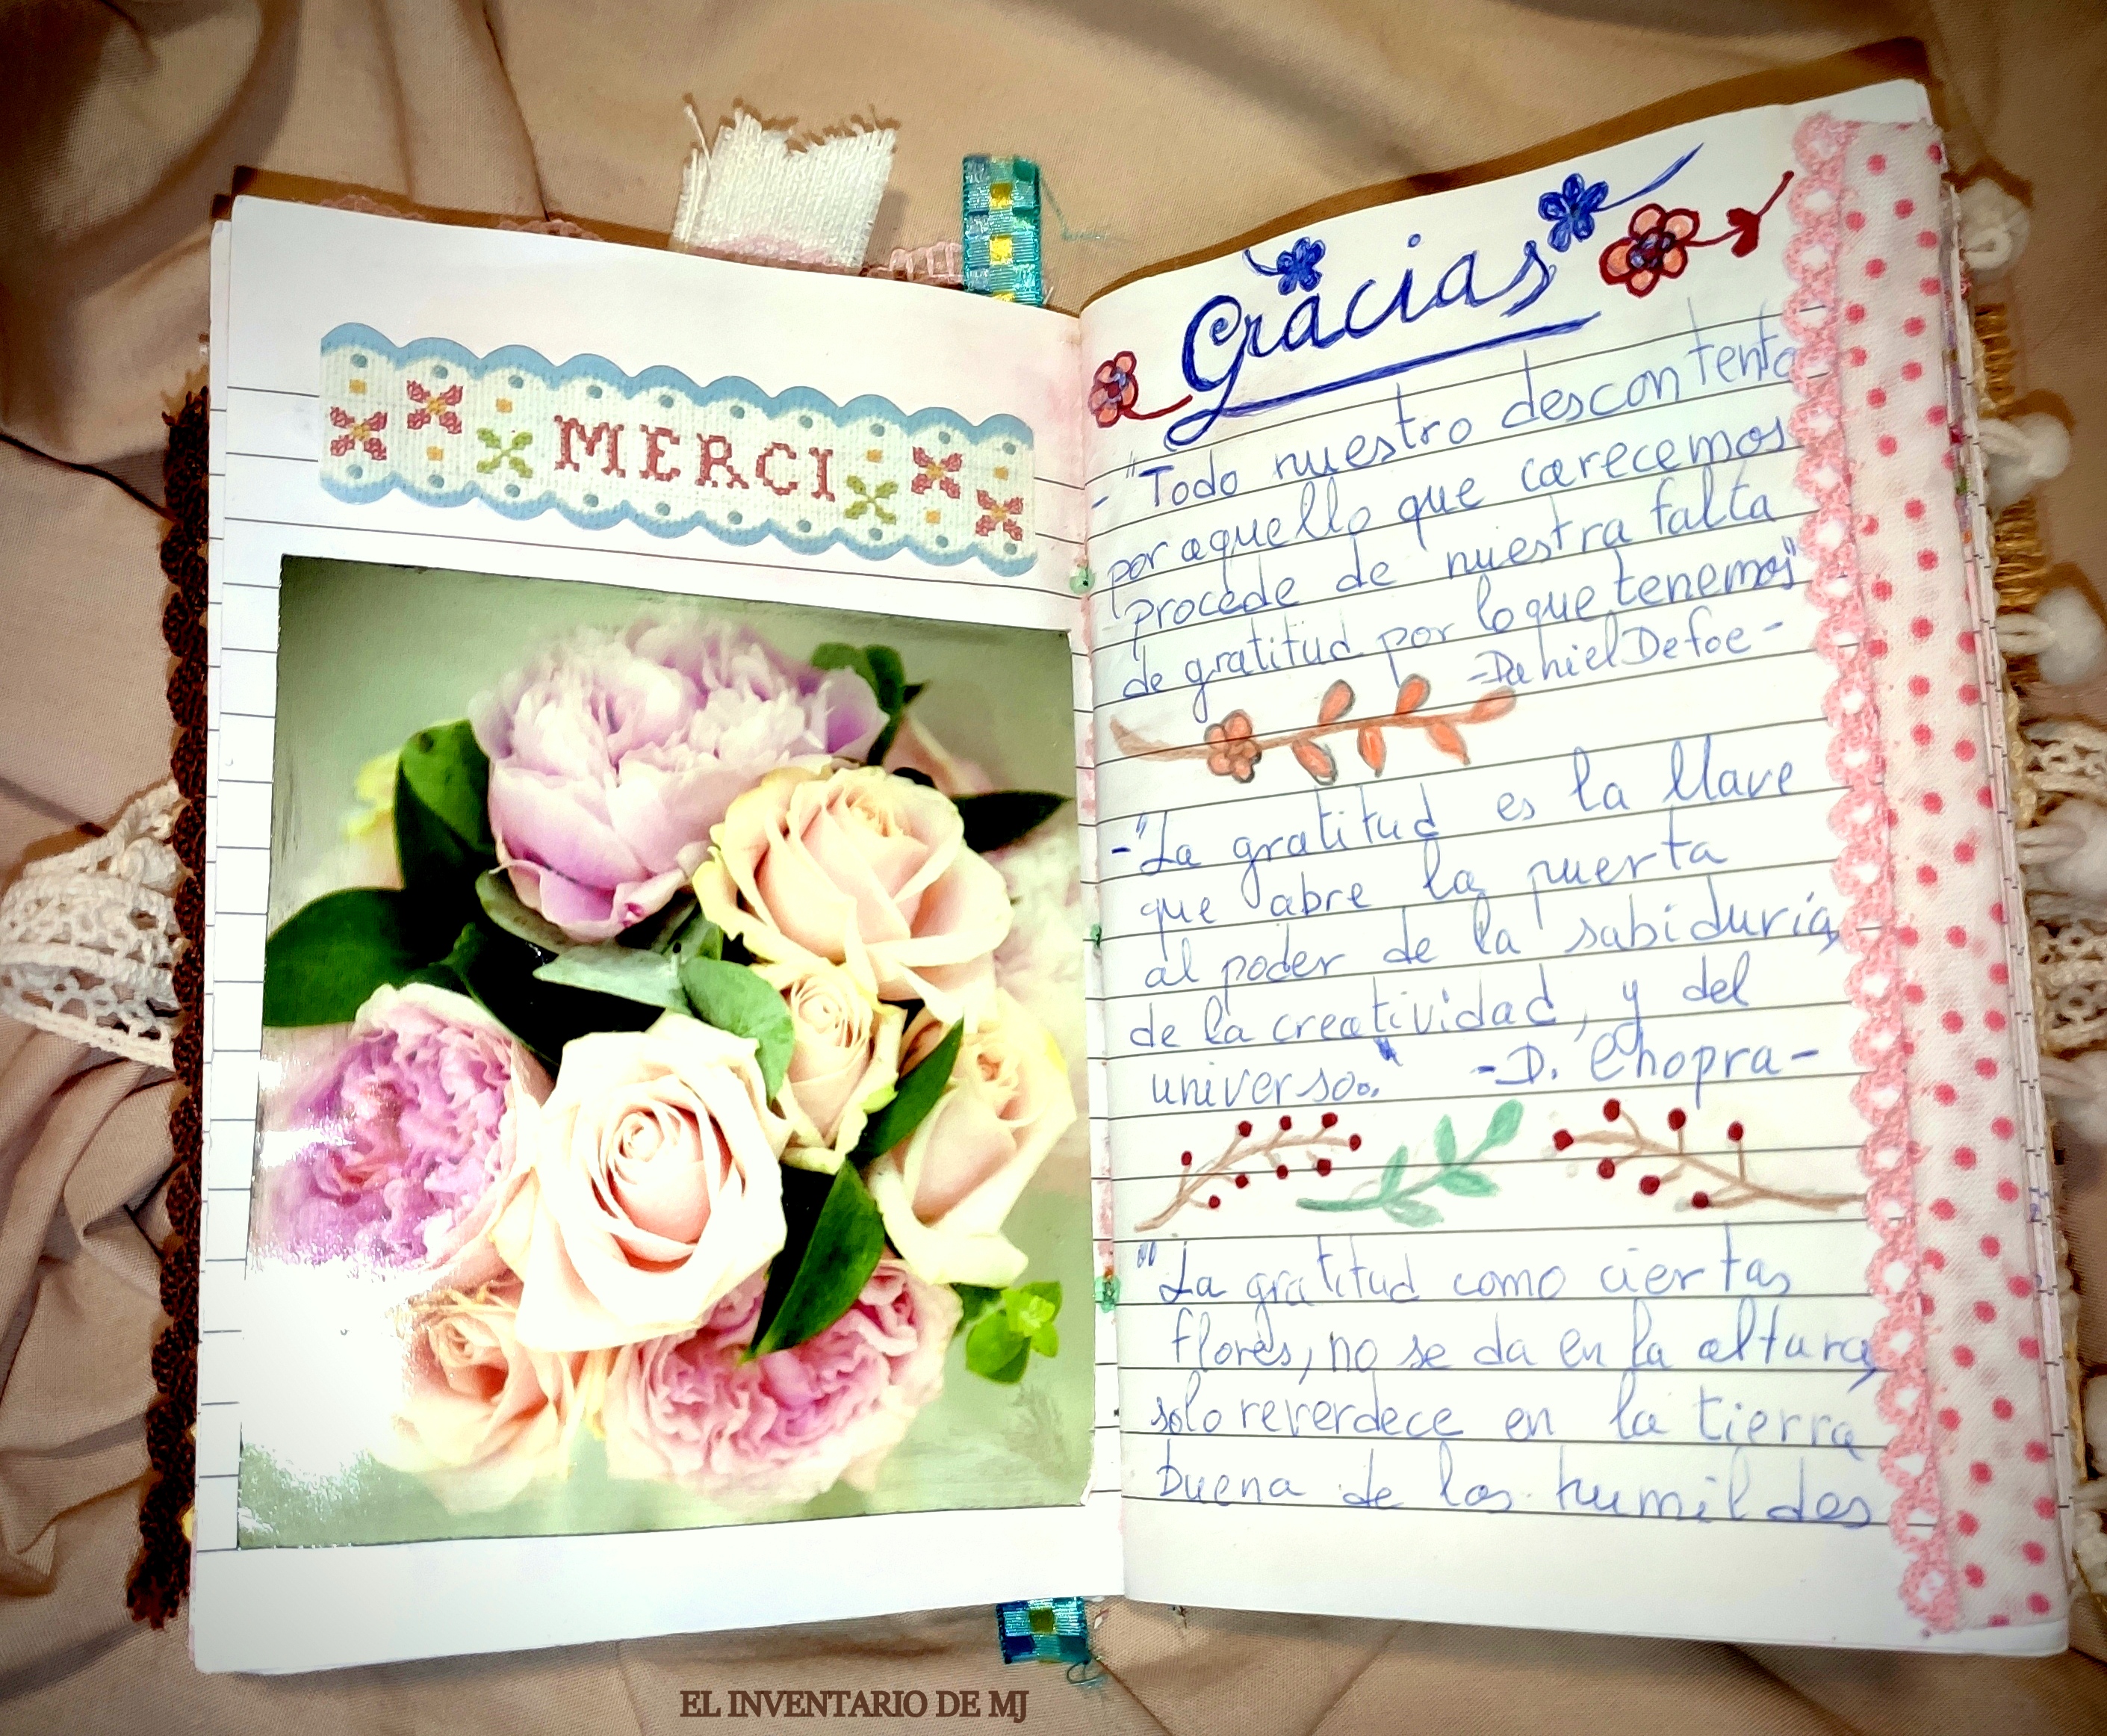 MERCI
Gracias
- "Todo nuestro descontento
por aquello que carecemos
procede de nuestra falta
de gratitud por lo que tenemos"
-Daniel Defoe-
-"La gratitud es la llave
que abre la puerta
al poder de la sabiduría,
de la creatividad, y del
universo." -D. Chopra-
"La gratitud como ciertas
flores, no se da en la altura,
solo reverdece en la tierra
buena de los humildes
EL INVENTARIO DE MJ